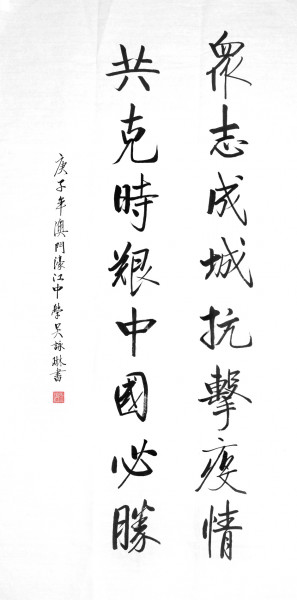 眾志成城抗擊疫情
共克時艱中國必勝
庚子年澳門濠江中學吳詠琳書